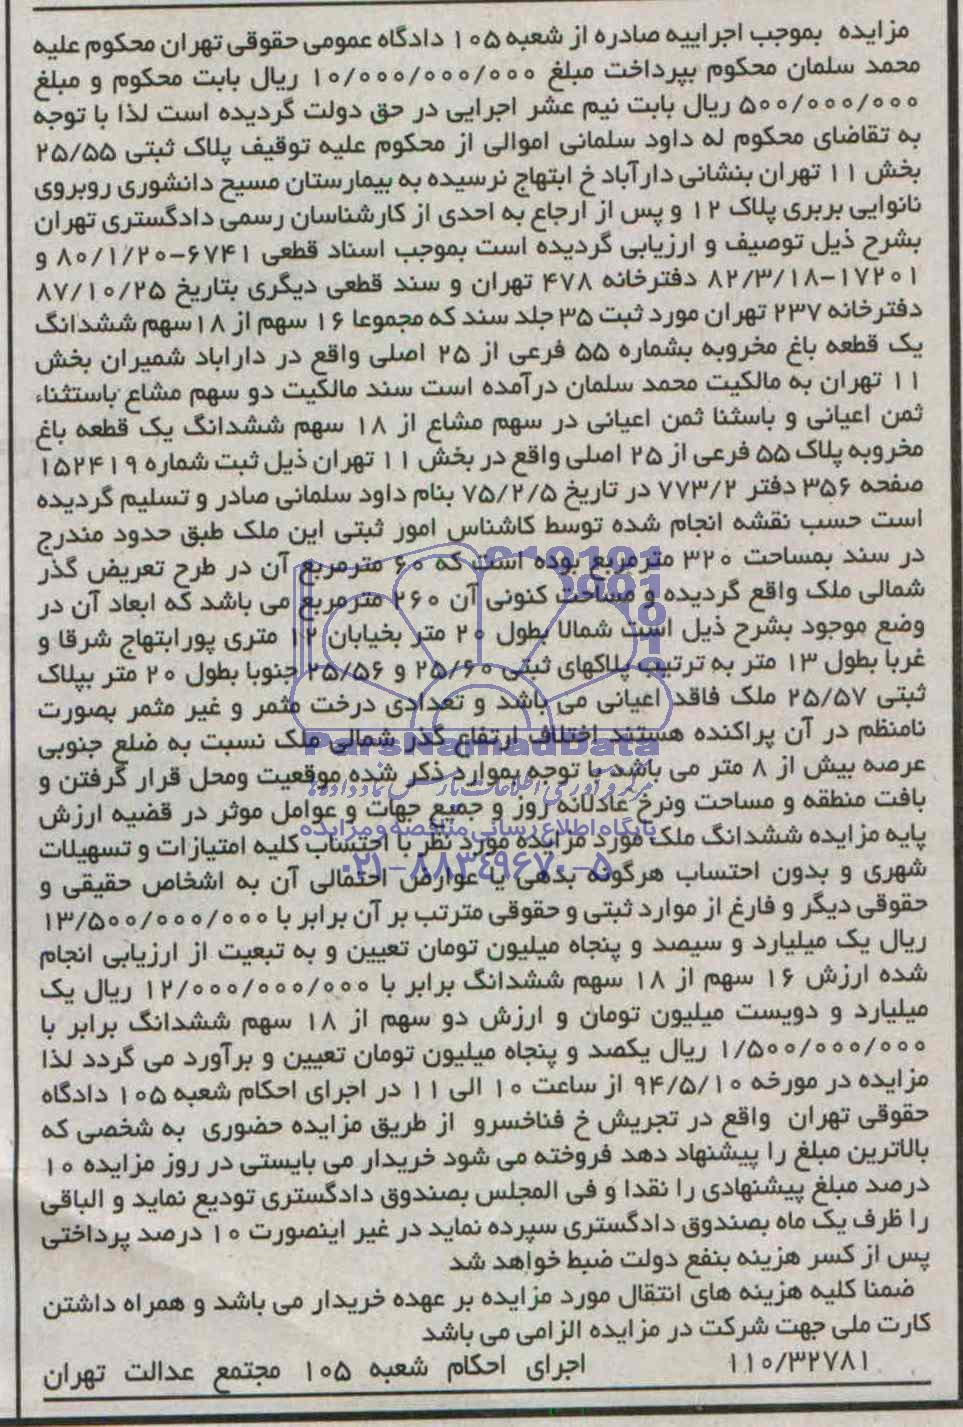 مزایده بموجب اجراییه صادره از شعبه ۱۰۵ دادگاه عمومی حقوقی تهران محکوم علیه
محمد سلمان محکوم بپرداخت مبلغ ۱۰/۰۰۰/۰۰۰/۰۰۰ ریال بابت محکوم و مبلغ
۵۰۰/۰۰۰/۰۰۰ ریال بابت نیم عشر اجرایی در حق دولت گردیده است لذا با توجه
به تقاضای محکوم له داود سلمانی اموالی از محکوم علیه توقیف پلاک ثبتی ۲۵/۵۵
بخش ۱۱ تهران بنشانی دارآباد خ ابتهاج نرسیده به بیمارستان مسیح دانشوری روبروی
نانوایی بربری پلاک ۱۲ و پس از ارجاع به احدی از کارشناسان رسمی دادگستری تهران
بشرح ذیل توصیف و ارزیابی گردیده است بموجب اسناد قطعی ۶۷۴۱-۸۰/۱/۲۰ و
۱۷۲۰۱-۸۲/۳/۱۸ دفترخانه ۴۷۸ تهران و سند قطعی دیگری بتاریخ ۸۷/۱۰/۲۵
دفترخانه ۲۳۷ تهران مورد ثبت ۳۵ جلد سند که مجموعا ۱۶ سهم از ۱۸ سهم ششدانگ
یک قطعه باغ مخروبه بشماره ۵۵ فرعی از ۲۵ اصلی واقع در داراباد شمیران بخش
۱۱ تهران به مالکیت محمد سلمان درآمده است سند مالکیت دو سهم مشاع باستثناء
ثمن اعیانی و باسثنا ثمن اعیانی در سهم مشاع از ۱۸ سهم ششدانگ یک قطعه باغ
مخروبه پلاک ۵۵ فرعی از ۲۵ اصلی واقع در بخش ۱۱ تهران ذیل ثبت شماره ۱۵۲۴۱۹
صفحه ۳۵۶ دفتر ۷۷۳/۲ در تاریخ ۷۵/۲/۵ بنام داود سلمانی صادر و تسلیم گردیده
است حسب نقشه انجام شده توسط کاشناس امور ثبتی این ملک طبق حدود مندرج
در سند بمساحت ۳۲۰ مترمربع بوده است که ۶۰ مترمربع آن در طرح تعریض گذر
شمالی ملک واقع گردیده و مساحت کنونی آن ۲۶۰ مترمربع می باشد که ابعاد آن در
وضع موجود بشرح ذیل است شمالا بطول ۲۰ متر بخیابان ۱۲ متری پورابتهاج شرقا و
غربا بطول ۱۳ متر به ترتیب پلاکهای ثبتی ۲۵/۶۰ و ۲۵/۵۶ جنوبا بطول ۲۰ متر بپلاک
ثبتی ۲۵/۵۷ ملک فاقد اعیانی می باشد و تعدادی درخت مثمر و غیر مثمر بصورت
نامنظم در آن پراکنده هستند اختلاف ارتفاع گذر شمالی ملک نسبت به ضلع جنوبی
عرصه بیش از ۸ متر می باشد با توجه بموارد ذکر شده موقعیت ومحل قرار گرفتن و
بافت منطقه و مساحت ونرخ عادلانه روز و جمیع جهات و عوامل موثر در قضیه ارزش
پایه مزایده ششدانگ ملک مورد مزایده مورد نظر با احتساب کلیه امتیازات و تسهیلات
شهری و بدون احتساب هرگونه بدهی یا عوارض احتمالی آن به اشخاص حقیقی و
حقوقی دیگر و فارغ از موارد ثبتی و حقوقی مترتب بر آن برابر با ۱۳/۵۰۰/۰۰۰/۰۰۰
ریال یک میلیارد و سیصد و پنجاه میلیون تومان تعیین و به تبعیت از ارزیابی انجام
شده ارزش ۱۶ سهم از ۱۸ سهم ششدانگ برابر با ۱۲/۰۰۰/۰۰۰/۰۰۰ ریال یک
میلیارد و دویست میلیون تومان و ارزش دو سهم از ۱۸ سهم ششدانگ برابر با
۱/۵۰۰/۰۰۰/۰۰۰ ریال یکصد و پنجاه میلیون تومان تعیین و برآورد می گردد لذا
مزایده در مورخه ۹۴/۵/۱۰ از ساعت ۱۰ الی ۱۱ در اجرای احکام شعبه ۱۰۵ دادگاه
حقوقی تهران واقع در تجریش خ فناخسرو از طریق مزایده حضوری به شخصی که
بالاترین مبلغ را پیشنهاد دهد فروخته می شود خریدار می بایستی در روز مزایده ۱۰
درصد مبلغ پیشنهادی را نقدا و فی المجلس بصندوق دادگستری تودیع نماید و الباقی
را ظرف یک ماه بصندوق دادگستری سپرده نماید در غیر اینصورت ۱۰ درصد پرداختی
پس از کسر هزینه بنفع دولت ضبط خواهد شد
ضمنا کلیه هزینه های انتقال مورد مزایده بر عهده خریدار می باشد و همراه داشتن
کارت ملی جهت شرکت در مزایده الزامی می باشد
۱۱۰/۳۲۷۸۱ اجرای احکام شعبه ۱۰۵ مجتمع عدالت تهران
ParsNamadData
پایگاه اطلاع رسانی مناقصه و مزایده
۰۲۱-۸۸۳۴۹۶۷۰-۵